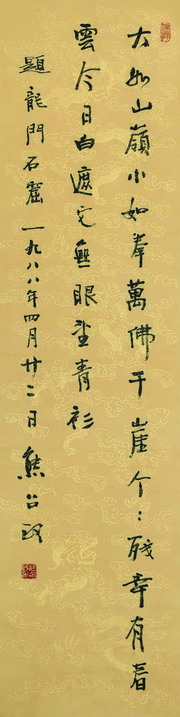 大如山嶺小如拳萬佛千崖个〻殘幸有春
雲今日白遮它無眼望青衫
題龍門石窟 一九八八年四月廿二日 熊召政